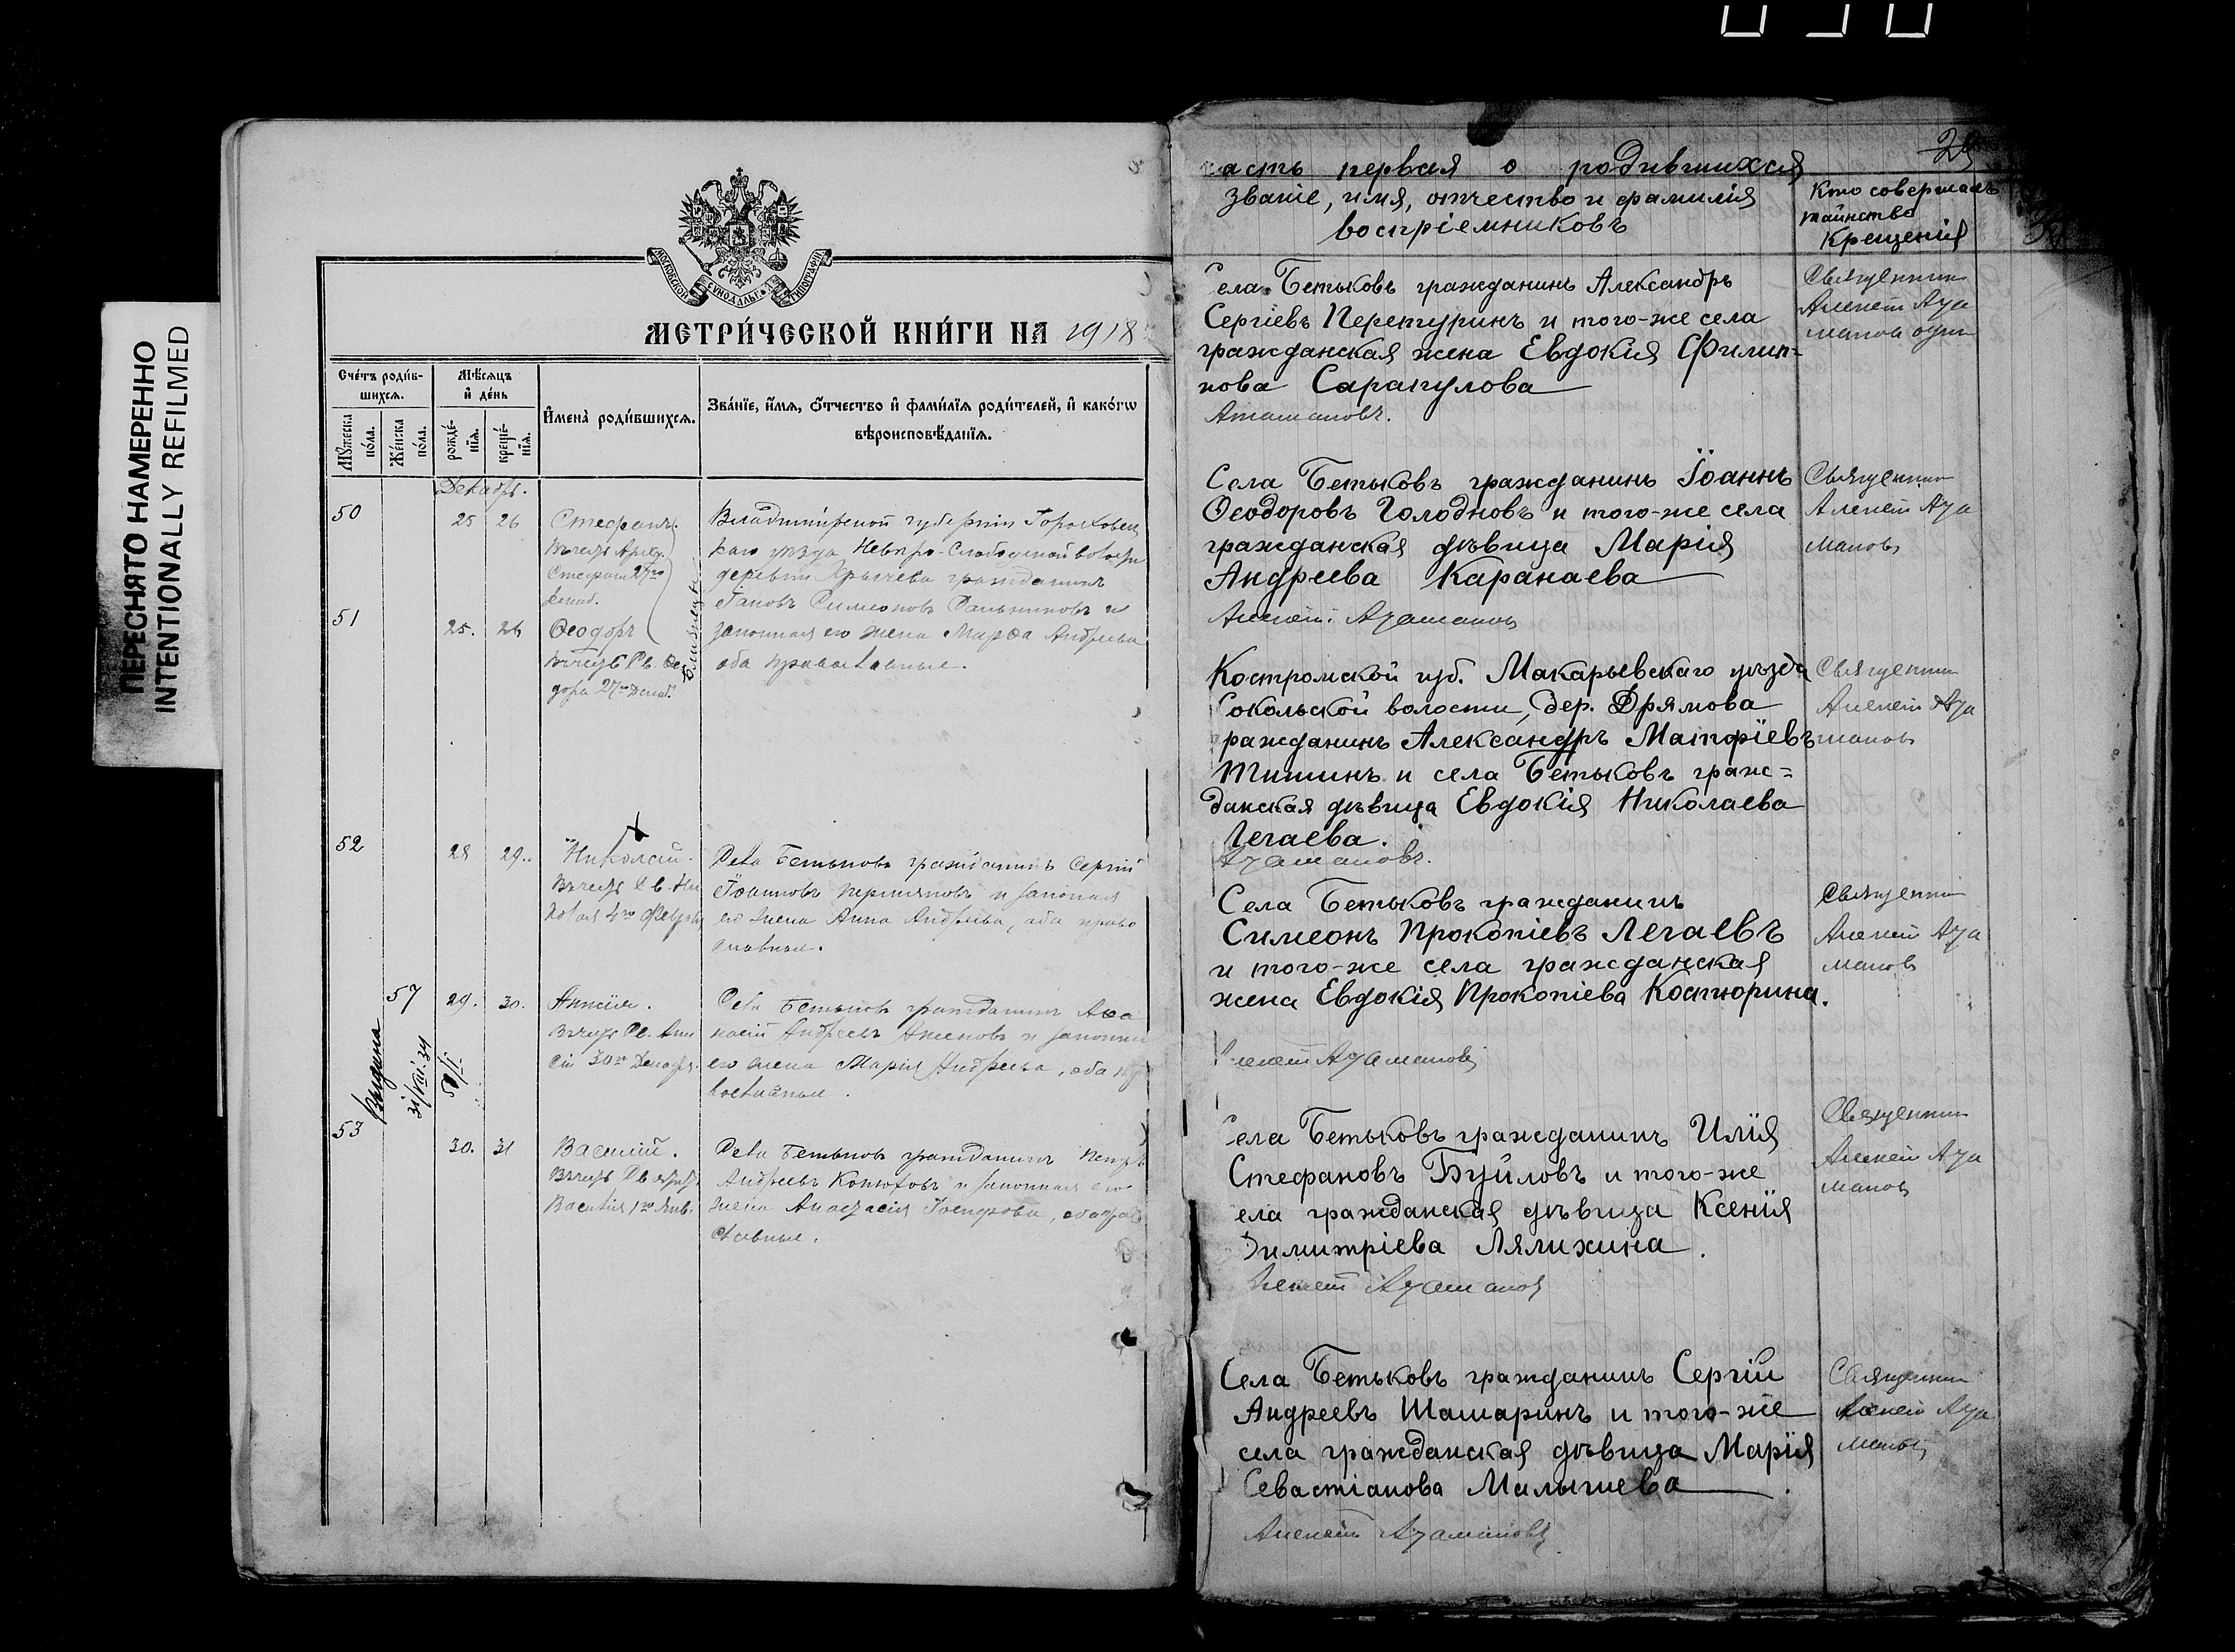 ПЕРЕСНЯТО НАМЕРЕННО
INTENTIONALLY REFILMED
МОСКОВСКОЙ СУНОДАЛЬН. ТИПОГРАФІИ
МЕТРИ́ЧЕСКОЙ КНИ́ГИ НА 1918
Сче́тъ роди́в-
шихся.
Мѣ́сяцъ
и҆ де́нь
Мꙋ́жеска
по́ла.
Же́нска
по́ла.
рожде́-
нїѧ.
креще́-
нїѧ.
И҆мена̀ роди́вшихсѧ.
Зва́нїе, и҆́мѧ, ѻ҆́тчество и҆ фами́лїѧ роди́телей, и҆ како́гѡ
вѣроисповѣ́данїѧ.
Декабрь.
50 25 26 Стефанъ.
Владимірской губерніи Гороховец
каго уѣзда
деревни гражданинъ
Симеоновъ и
51 25. 26 Ѳеодоръ
законная его жена Марѳа Андреева
оба православные.
дора 27го Декаб.
Близнецы
52 28 29. Николай.
Села Бетьковъ гражданинъ Сергій
Іоанновъ Пермяковъ и законная
его жена Анна Андреева, оба право
славные.
колая 4го Февраля
57 29. 30. Анисія.
Села Бетьковъ гражданинъ Аѳа
насій Андреевъ и законная
его жена Марія Андреева, оба пра
вославные.
сіи 30го Декабря.
Выдана
31/VII.34
53 30. 31 Василій.
Села Бетьковъ гражданинъ Петръ
Андреевъ Конюховъ и законная его
жена Анастасія Іосифова, оба право
славные.
Василія 1го Янв.
29
часть первая о родившихся
Званіе, имя, отчество и фамилія
воспріемниковъ
Кто совершалъ
таинство
Крещенія
Села Бетьковъ гражданинъ Александръ
Сергіевъ Перетуринъ и того-же села
гражданская жена Евдокія Филип-
пова Сарапулова
Священникъ
Алексѣй Аза
мановъ
Села Бетьковъ гражданинъ Іоаннъ
Ѳеодоровъ Голодновъ и того-же села
гражданская дѣвица Марія
Андреева Каранаева
Алексѣй Азамановъ
Священникъ
Алексѣй Аза
мановъ
Костромской губ. Макарьевскаго уѣзда
Сокольской волости, дер. Дрямова
гражданинъ Александръ Матфіевъ
Тишинъ и села Бетьковъ граж=
данская дѣвица Евдокія Николаева
Легаева.
Азамановъ.
Священникъ
Алексѣй Аза
мановъ
Села Бетьковъ гражданинъ
Симеонъ Прокопіевъ Легаевъ
и того-же села гражданская
жена Евдокія Прокопіева Костюрина.
Алексѣй Азамановъ
Священникъ
Алексѣй Аза
мановъ
Села Бетьковъ гражданинъ Илія
Стефановъ Буйловъ и того-же
села гражданская дѣвица Ксенія
Димитріева Лялихина.
Алексѣй Азамановъ
Священникъ
Алексѣй Аза
мановъ
Села Бетьковъ гражданинъ Сергій
Андреевъ Шашаринъ и того-же
села гражданская дѣвица Марія
Севастіанова Малышева
Алексѣй Азамановъ
Священникъ
Алексѣй Аза
мановъ